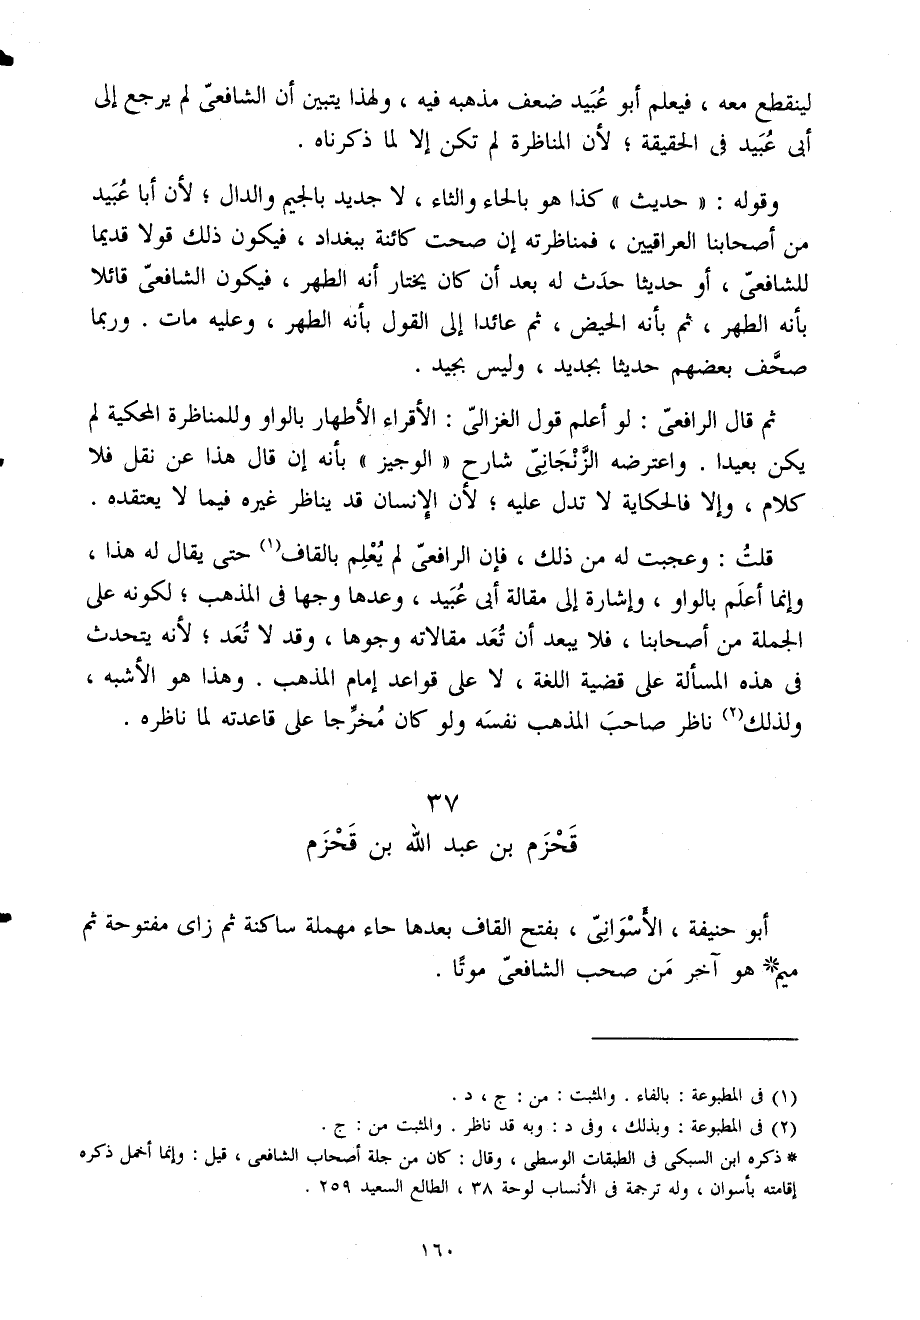 لينقطع معه ، فيعلم أبو عُبَيد ضعف مذهبه فيه ، ولهذا يتبين أن الشافعىّ لم يرجع إلى
أبى عُبَيد فى الحقيقة ؛ لأن المناظرة لم تكن إلا لما ذكرناه .
وقوله : « حديث » كذا هو بالحاء والثاء ، لا جديد بالجيم والدال ؛ لأن أبا عُبَيد
من أصحابنا العراقيين ، فمناظرته إن صحت كائنة ببغداد ، فيكون ذلك قولا قديما
للشافعىّ ، أو حديثا حدَث له بعد أن كان يختار أنه الطهر ، فيكون الشافعىّ قائلا
بأنه الطهر ، ثم بأنه الحيض ، ثم عائدا إلى القول بأنه الطهر ، وعليه مات . وربما
صحَّف بعضهم حديثا بجديد ، وليس بجيد .
ثم قال الرافعىّ : لو أعلم قول الغزالىّ : الأقراء الأطهار بالواو وللمناظرة المحكية لم
يكن بعيدا . واعترضه الزَّنْجَانِىّ شارح « الوجيز » بأنه إن قال هذا عن نقل فلا
كلام ، وإلا فالحكاية لا تدل عليه ؛ لأن الإنسان قد يناظر غيره فيما لا يعتقده .
قلتُ : وعجبت له من ذلك ، فإن الرافعىّ لم يُعْلِم بالقاف(١) حتى يقال له هذا ،
وإنما أعلَم بالواو ، وإشارة إلى مقالة أبى عُبَيد ، وعدها وجها فى المذهب ؛ لكونه على
الجملة من أصحابنا ، فلا يبعد أن تُعَد مقالاته وجوها ، وقد لا تُعَد ؛ لأنه يتحدث
فى هذه المسألة على قضية اللغة ، لا على قواعد إمام المذهب . وهذا هو الأشبه ،
ولذلك(٢) ناظر صاحبَ المذهب نفسَه ولو كان مُخرِّجا على قاعدته لما ناظره .
٣٧
قَحْزَم بن عبد الله بن قَحْزَم
أبو حنيفة ، الأَسْوَانِىّ ، بفتح القاف بعدها حاء مهملة ساكنة ثم زاى مفتوحة ثم
ميم* هو آخر مَن صحب الشافعىّ موتًا .
(١) فى المطبوعة : بالفاء . والمثبت : من : ج ، د .
(٢) فى المطبوعة : وبذلك ، وفى د : وبه قد ناظر . والمثبت من : ج .
* ذكره ابن السبكى فى الطبقات الوسطى ، وقال : كان من جلة أصحاب الشافعى ، قيل : وإنما أخمل ذكره
إقامته بأسوان ، وله ترجمة فى الأنساب لوحة ٣٨ ، الطالع السعيد ٢٥٩ .
١٦٠